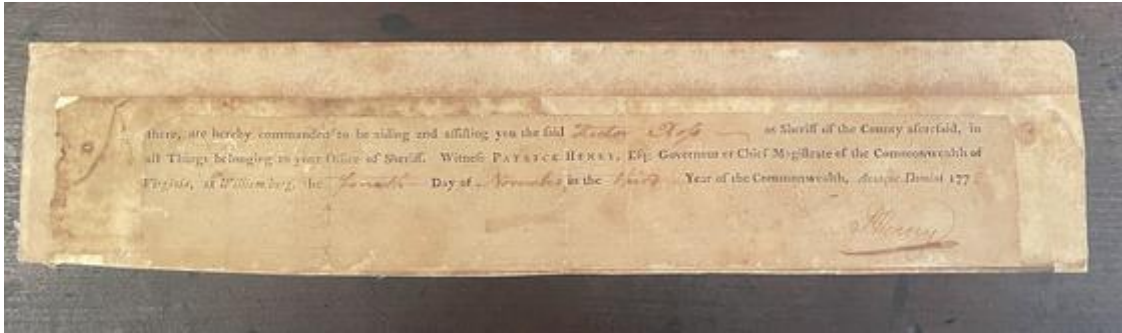 there, are hereby commanded to be aiding and aſſiſting you the ſaid Hector Roſs as Sheriff of the County aforeſaid, in
all Things belonging to your Office of Sheriff. Witneſs PATRICK HENRY, Eſq; Governour or Chief Magiſtrate of the Commonwealth of
Virginia, at Williamſburg, the fourth Day of November in the third Year of the Commonwealth, Annoque Domini 177
P Henry